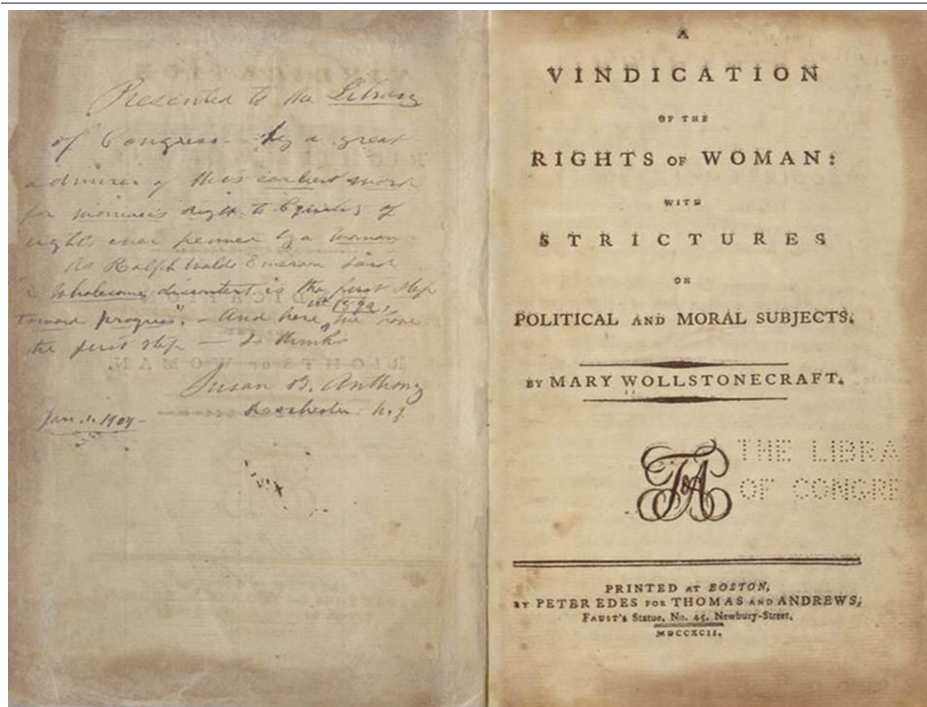 Presented to the Library
of Congress by a great
admirer of this earliest work
for woman's right to Equality of
rights ever penned by a woman
As Ralph Waldo Emerson said
"A wholesome discontent is the first step
toward progress". - And here, in 1792, we have
the first step - so thinks
Susan B. Anthony
Rochester N.Y.
Jan. 1, 1904-
A
VINDICATION
OF THE
RIGHTS OF WOMAN:
WITH
STRICTURES
ON
POLITICAL AND MORAL SUBJECTS.
BY MARY WOLLSTONECRAFT.
T&A
THE LIBRA
OF CONGRE
PRINTED AT BOSTON,
BY PETER EDES FOR THOMAS AND ANDREWS,
FAUST'S Statue, No. 45, Newbury-Street,
MDCCXCII.